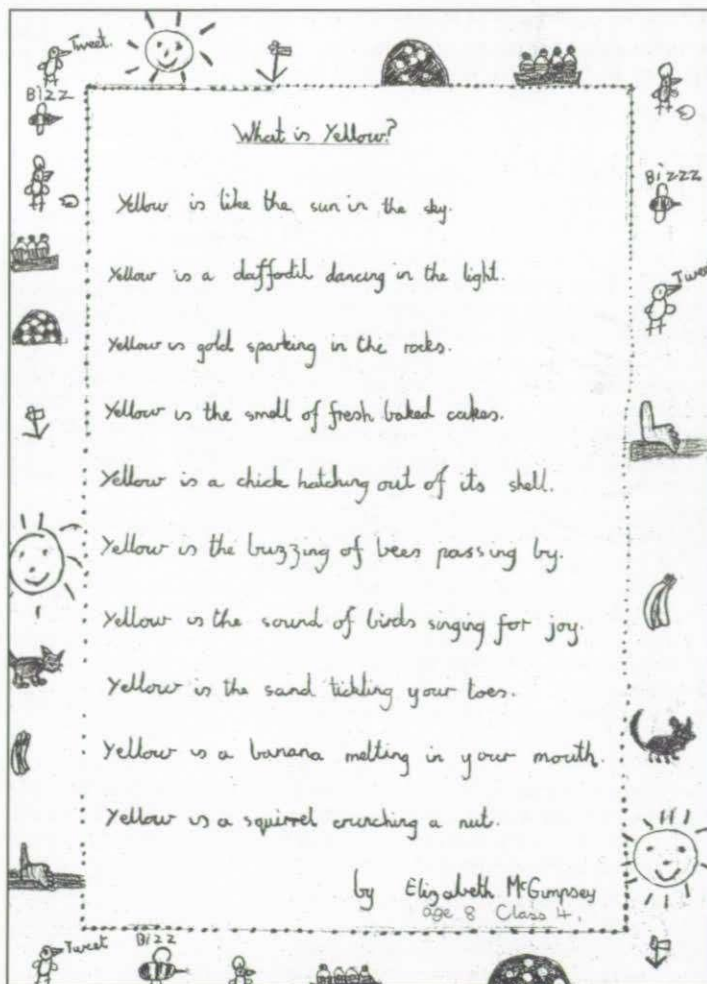 Tweet.
BIZZ
What is Yellow?
BIZZZ
Yellow is like the sun in the sky.
Yellow is a daffodil dancing in the light.
Tweet
Yellow is gold sparking in the rocks.
Yellow is the smell of fresh baked cakes.
Yellow is a chick hatching out of its shell.
Yellow is the buzzing of bees passing by.
Yellow is the sound of birds singing for joy.
Yellow is the sand tickling your toes.
Yellow is a banana melting in your mouth.
Yellow is a squirrel crunching a nut.
by Elizabeth McGimpsey
age 8 Class 4.
Tweet
BIZZ